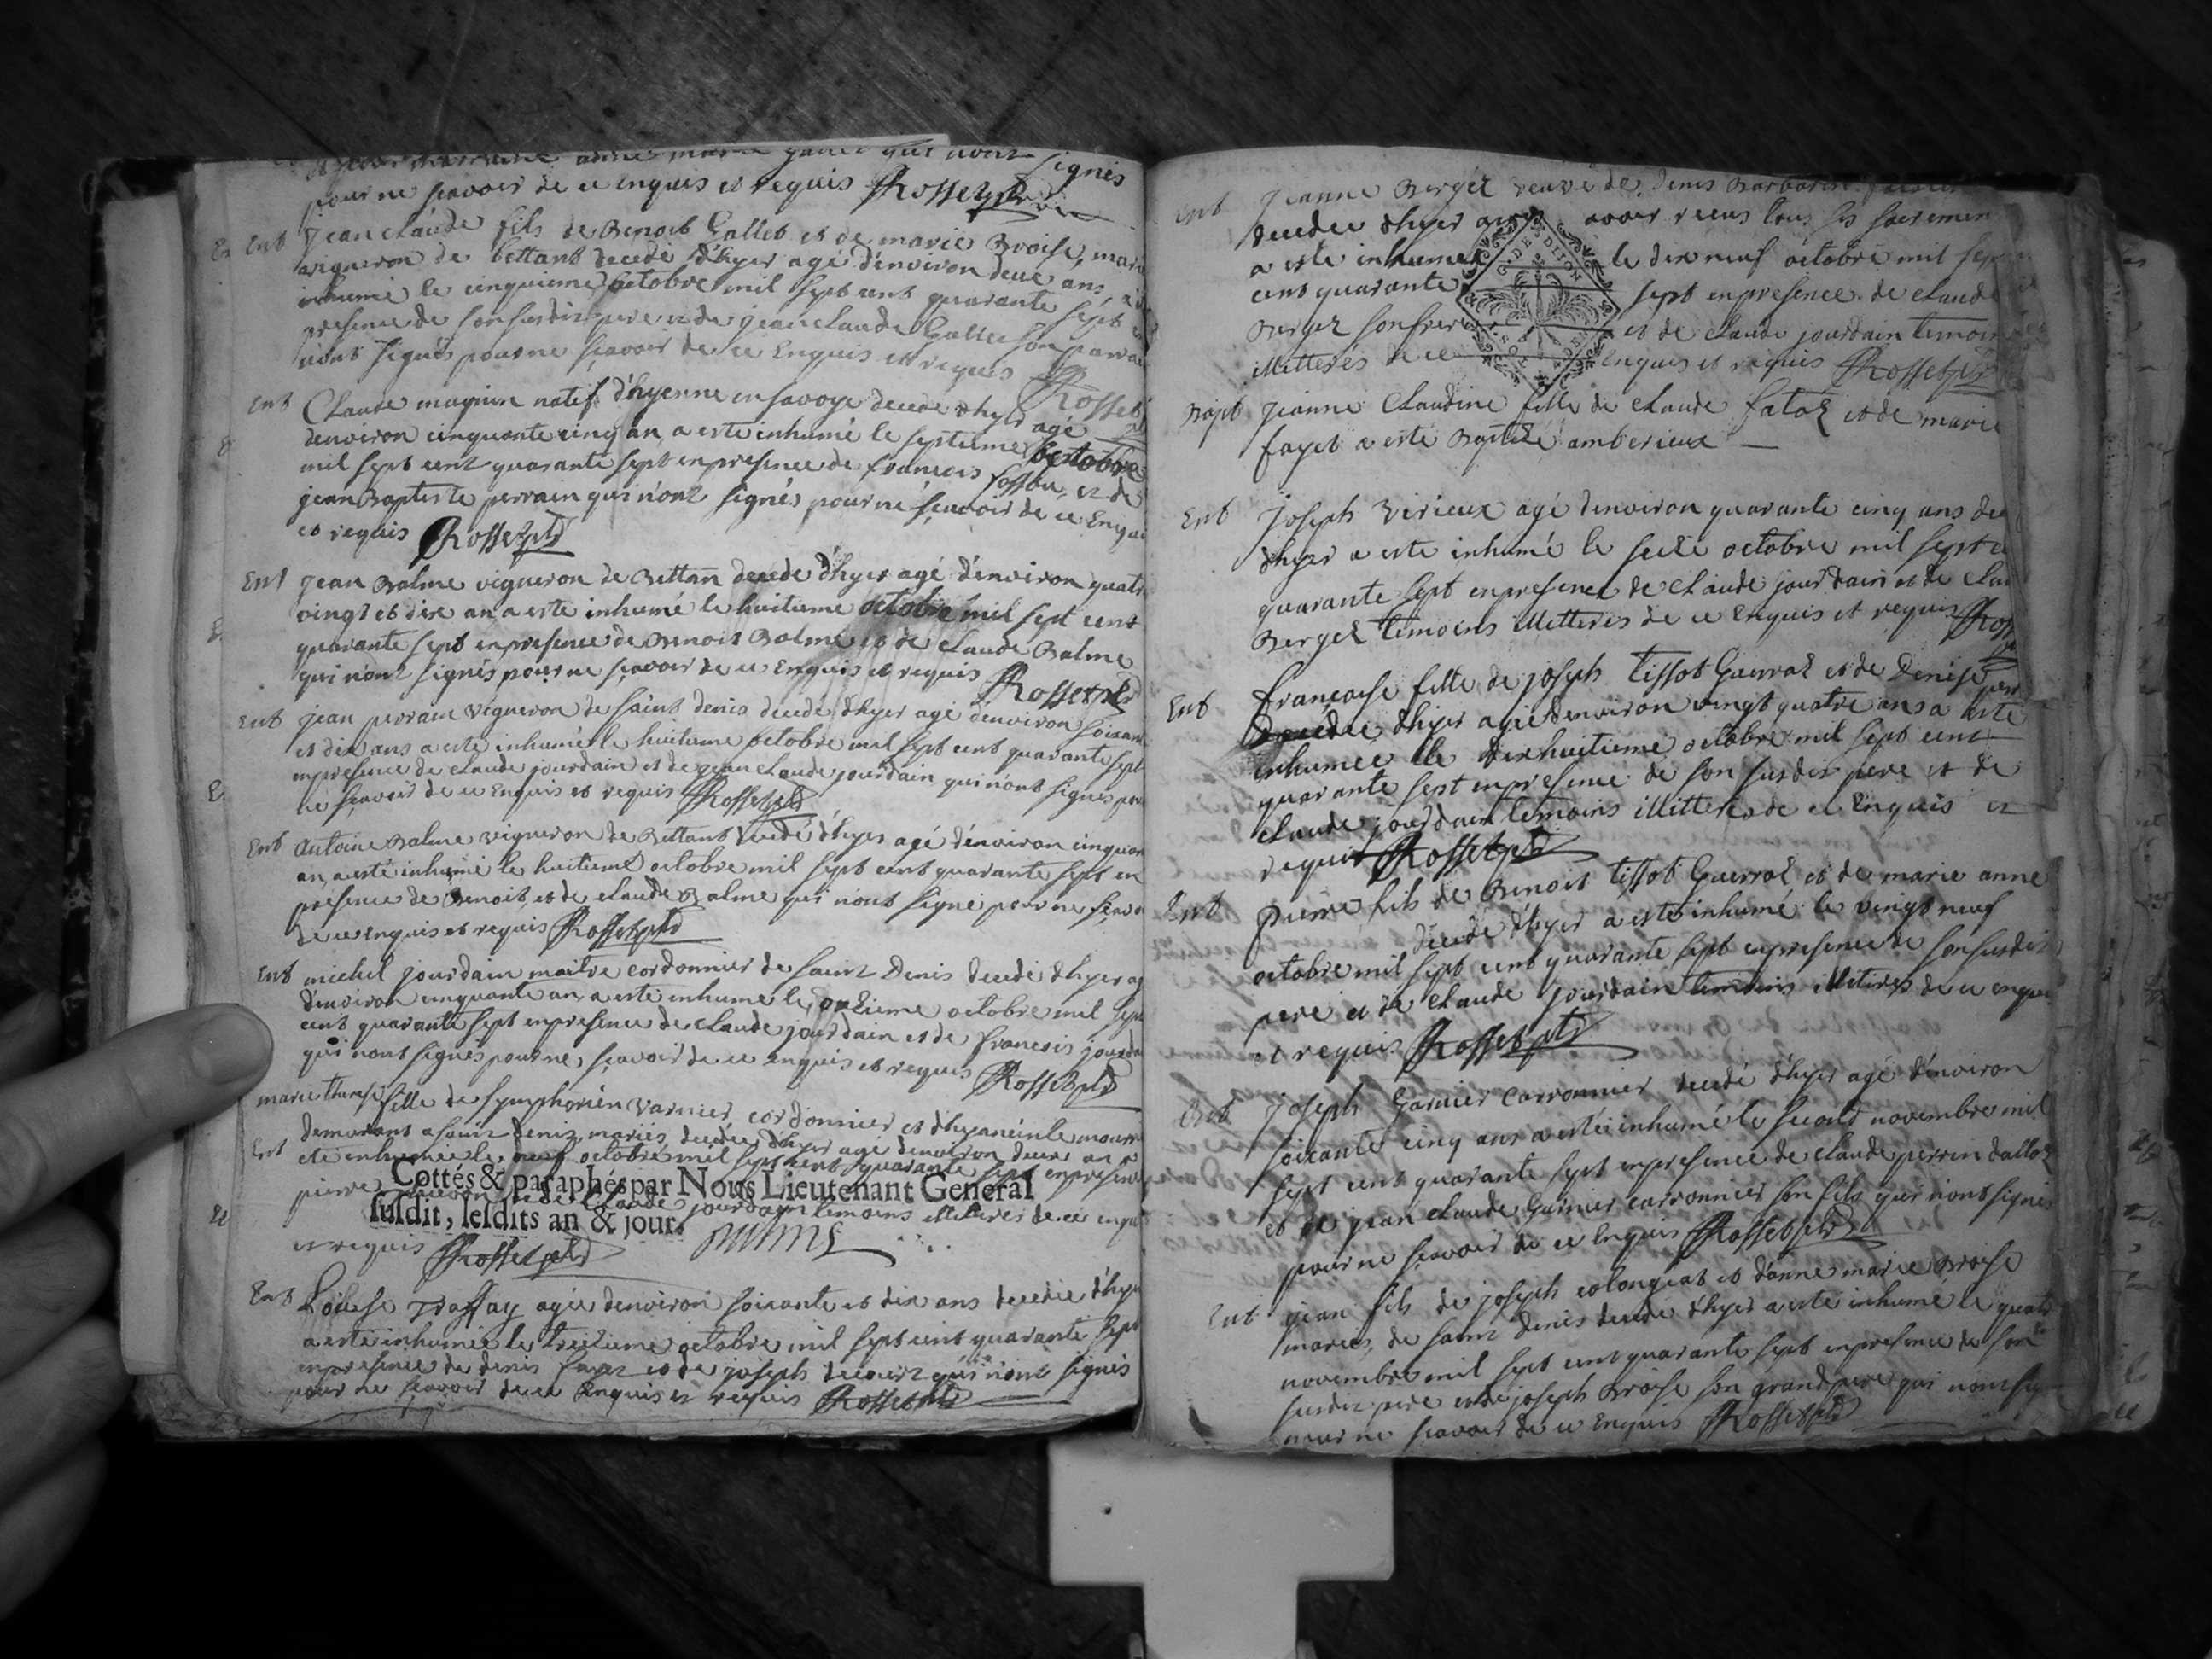 signés
pour ne scavoir de ce enquis et requis Rosset ptr
Ent Jean claude fils de Benoit Gallet et de marie Broise, mari
vigneron de bettant decedé d'hyer agé d'environ deux ans
inhumé le cinquieme octobre mil sept cent quarante sept
presence de son susdit pere et de jean claude Gallet son
n'ont signés pour ne scavoir de ce Enquis et requis Rosset
Ent Claude magnin natif d'hyenne en savoye decedé d'hyer agé
d'environ cinquante cinq an, a esté inhumé le septieme octobre
mil sept cent quarante sept en presence de francois fossou et de
jean Baptiste perrain qui n'ont signés pour ne scavoir de ce Enqui
et requis Rosset ptr
Ent jean Balme vigneron de Bettan decedé d'hyer agé d'environ quatr
vingt et dix an, a esté inhumé le huitieme octobre mil sept cent
quarante sept en presence de Benoit Balme et de claude Balme
qui n'ont signés pour ne scavoir de ce Enquis et requis Rosset ptr
Ent jean perrain vigneron de saint denis decedé d'hyer agé d'environ soixan
et dix ans a esté inhumé le huitieme octobre mil sept cent quarante sept
en presence de claude jourdain et de jean claude jourdain qui n'ont signés po
ne scavoir de ce Enquis et requis Rosset ptr
Ent Antoine Balme vigneron de Bettant decedé d'hyer agé d'environ cinquan
an, a esté inhumé le huitieme octobre mil sept cent quarante sept en
presence de Benoit, et de claude Balme qui n'ont signé pour ne scavo
de ce enquis et requis Rosset ptr
Ent michel jourdain maitre cordonnier de saint Denis decedé d'hyer ag
d'environ cinquante an, a esté inhumé le onzieme octobre mil sept
cent quarante sept en presence de claude jourdain et de francois jourda
qui n'ont signés pour ne scavoir de ce enquis et requis Rosset ptr
marie therese fille de symphorien varnier cordonnier et
demeurant a saint deniz, mariés, decedée d'hyer agé d'environ deux an a
Ent eté inhumée le neuf octobre mil sept cent quarante sept en presence
pierre et de claude jourdain temoins illitteres de ce enqui
Cottés & paraphés par Nous Lieutenant General
susdit, lesdits an & jour.
et requis Rosset ptr
Ent Louise agée d'environ soixante et dix ans decedée d'hye
a esté inhumée le treizieme octobre mil sept cent quarante sept
en presence de denis et de joseph decourt qui n'ont signés
pour ne scavoir de ce Enquis et requis Rosset ptr
Ent Jeanne Berger veuve de denis Barbarin
decedée d'hyer apres avoir receus tous ses sacremen
a esté inhumée le dix neuf octobre mil sep
cent quarante sept en presence de claude
Berger son frere et de claude jourdain temoin
illitterés de ce enquis et requis Rosset ptr
G. DE DIJON
Bapt jeanne Claudine fille de claude fatoz et de marie
fayet a esté Baptizé amberieux
Ent joseph virieux agé d'environ quarante cinq ans de
d'hyer a esté inhumé le seize octobre mil sept c
quarante sept en presence de claude jourdain et de clau
Berger temoins illitteres de ce enquis et requis Ross
Ent francoise fille de joseph tissot Guerraz et de Denise
decedée d'hyer agée d'environ vingt quatre ans a esté
inhumée le dix huitieme octobre mil sept cent
quarante sept en presence de son susdit pere et de
claude jourdain temoins illitteres de ce Enquis et
requis Rosset ptr
Ent pierre fils de Benoit tissot Guerraz et de marie anne
decedé d'hyer a esté inhumé le vingt neuf
octobre mil sept cent quarante sept en presence de son susdit
pere et de claude jourdain temoins illitteres de ce enqui
et requis Rosset ptr
Ent joseph Garnier carronnier decedé d'hyer agé d'environ
soixante cinq ans a esté inhumé le second novembre mil
sept cent quarante sept en presence de claude perrin dalloz
et de jean claude Garnier carronnier son fils qui n'ont signés
pour ne scavoir de ce enquis Rosset ptr
Ent jean fils de joseph colongeat et d'anne marie Broise
mariés, de saint denis decedé d'hyer a esté inhumé le quatr
novembre mil sept cent quarante sept en presence de son
susdit pere et de joseph Broise son grand pere qui n'ont sig
pour ne scavoir de ce enquis Rosset ptr